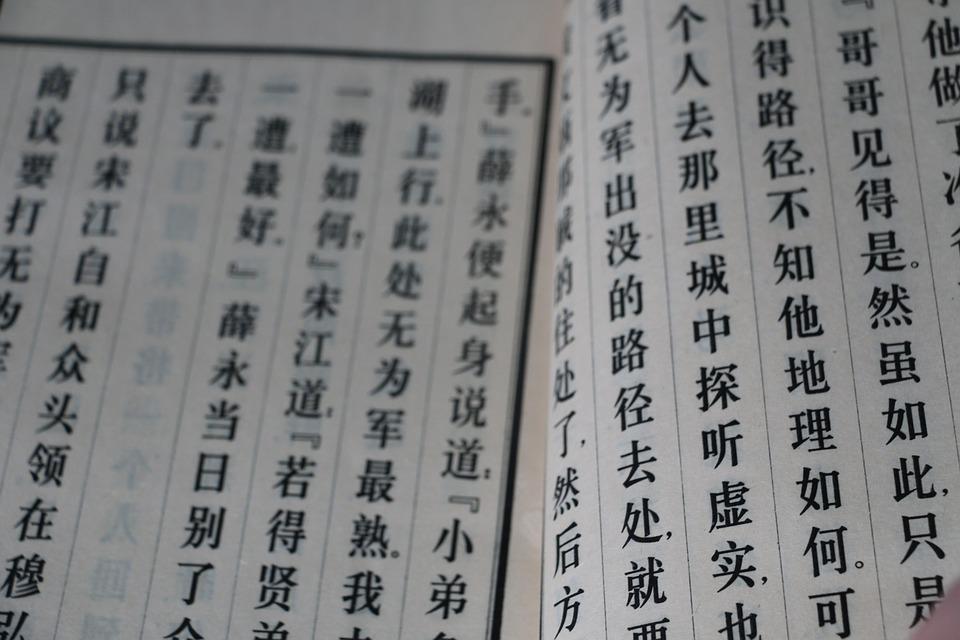 他做了
『哥哥见得是。然虽如此,只是
识得路径,不知他地理如何。可
个人去那里城中探听虚实,也
看无为军出没的路径去处,就要
的住处了,然后方
手。』薛永便起身说道:『小弟
湖上行。此处无为军最熟。我
一遭如何?』宋江道:『若得贤弟
一遭最好。』薛永当日别了众
去了。
只说宋江自和众头领在穆弘
商议要打无为军